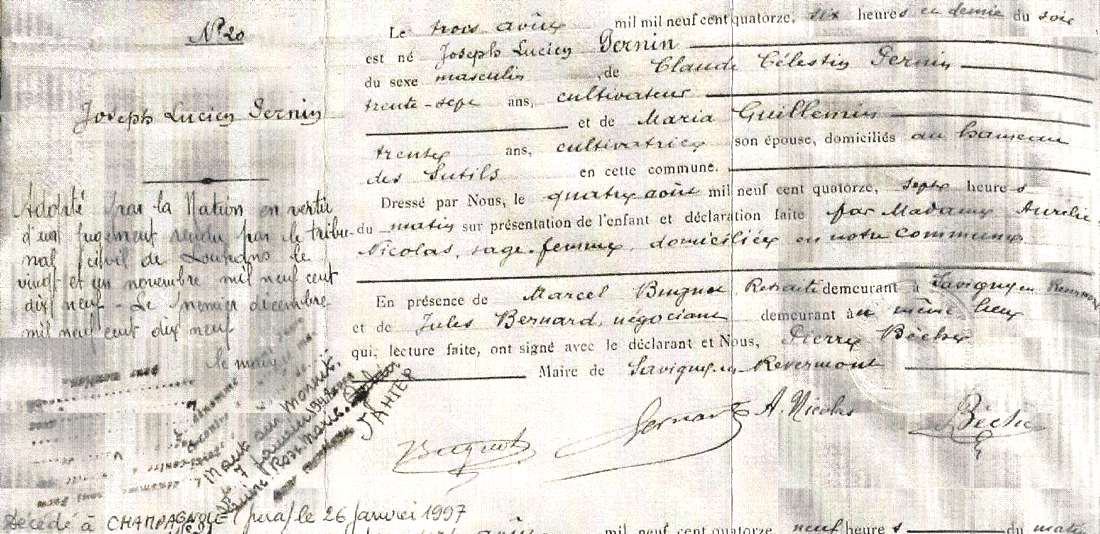 N° 20
Joseph Lucien Pernin
Adopté par la Nation en vertu
d'un jugement rendu par le tribu-
nal civil de Louhans le
vingt et un novembre mil neuf cent
dix neuf - Le premier décembre
mil neuf cent dix neuf
le maire
Le trois août mil mil neuf cent quatorze, six heures et demie du soir
est né Joseph Lucien Pernin
du sexe masculin, de Claude Célestin Pernin
trente-sept ans, cultivateur
et de Maria Guillemin
trente ans, cultivatrice son épouse, domiciliés au hameau
des Sutils en cette commune.
Dressé par Nous, le quatre août mil neuf cent quatorze, sept heures
du matin sur présentation de l'enfant et déclaration faite par Madame Aurélie
Nicolas, sage-femme, domiciliée en notre commune
En présence de Marcel Buguet Retraité demeurant à Savigny en Revermont
et de Jules Bernard, négociant demeurant au même lieu
qui, lecture faite, ont signé avec le déclarant et Nous, Pierre Bèche
Maire de Savigny en Revermont
Buguet Bernard A. Nicolas Bèche
Marié aux Monnet
Rose Marie
JAHIER
Décédé à CHAMPAGNOLE (Jura) le 26 janvier 1997
mil neuf cent quatorze, neuf heures du matin